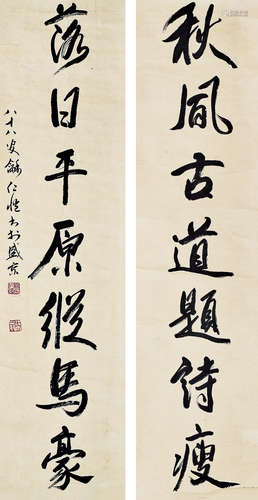 秋風古道題詩瘦
落日平原縱馬豪
八十八叟龢仁愷書於盛京